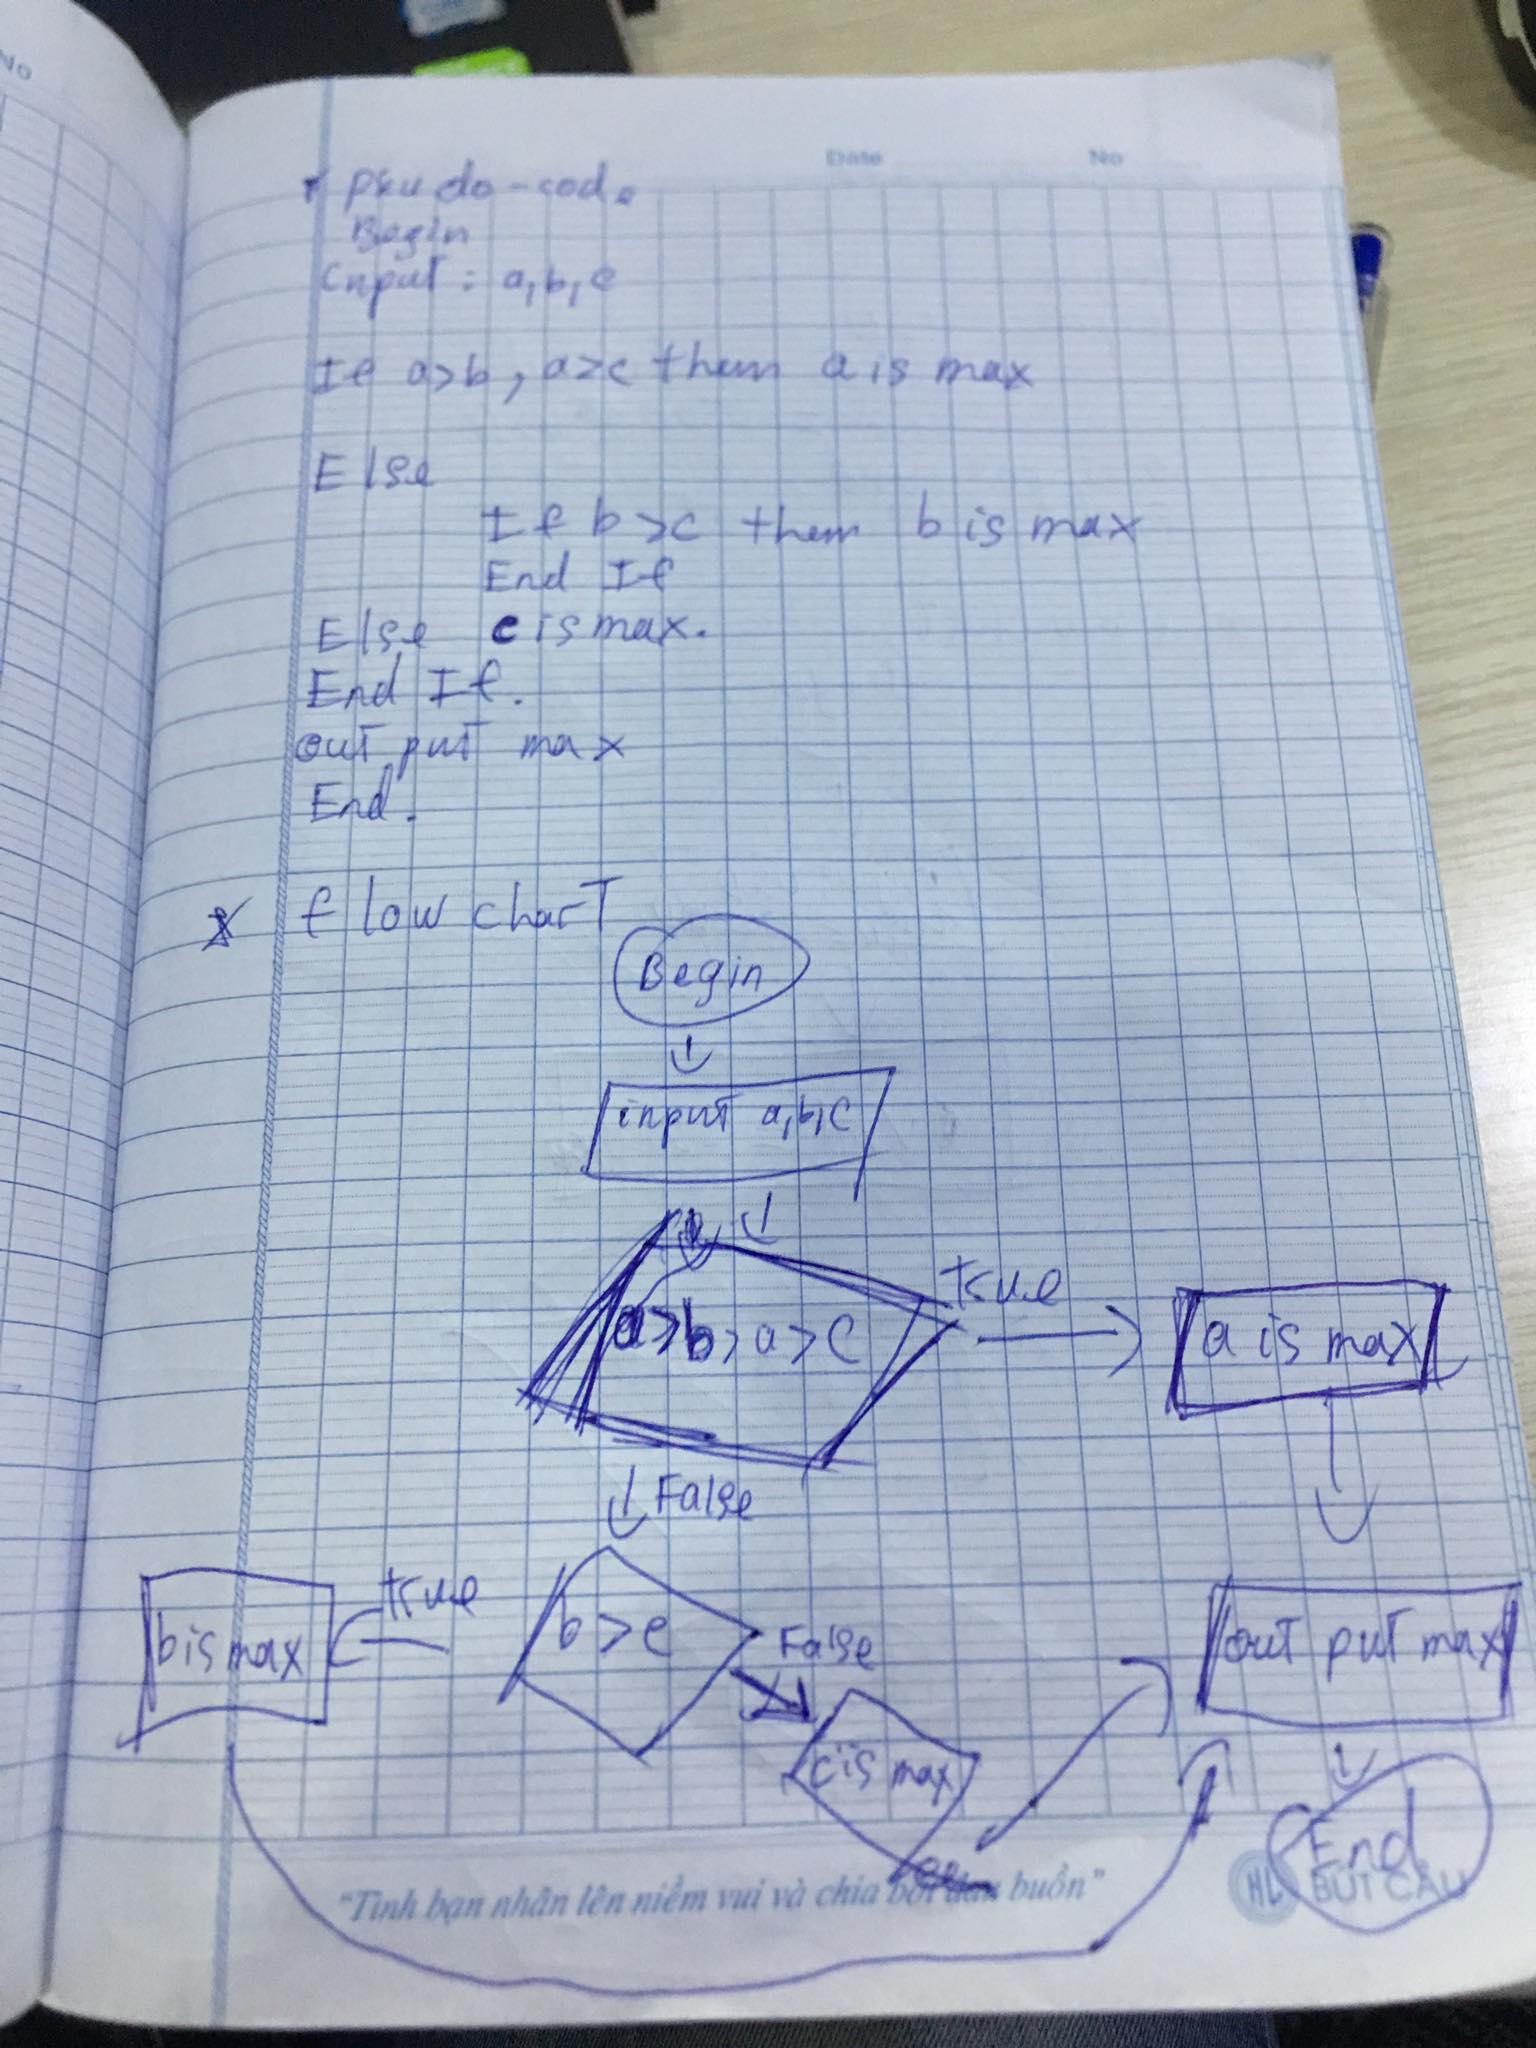 No
Date No
* Pseudo-code
Begin
Input: a,b,c
If a>b, a>c them a is max
Else
If b>c them b is max
End If
Else c is max.
End If.
out put max
End.
* flow chart
Begin
input a,b,c
a>b, a>c
true
a is max
False
b is max
true
b>c
False
out put max
c is max
End
"Tình bạn nhân lên niềm vui và chia bớt đau buồn"
HL BÚT CÂU